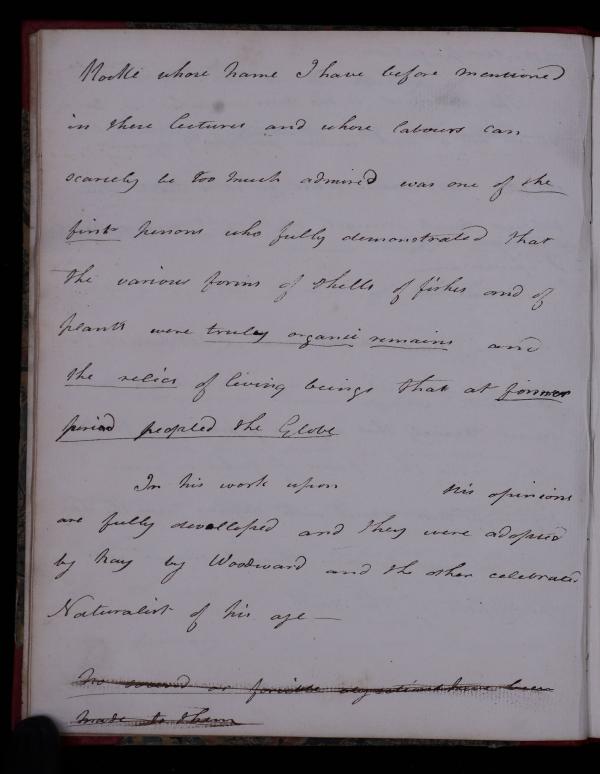 Hooke whose name I have before mentioned
in these lectures and whose labours can
scarcely be too much admired was one of the
first persons who fully demonstrated that
the various forms of shells of fishes and of
plants were truly organic remains and
the relics of living beings that at former
period peopled the Globe
In his work upon his opinions
are fully devellopped and they were adopted
by Ray by Woodward and the other celebrated
Naturalist of his age —
No sound or forcible objections have been
made to them